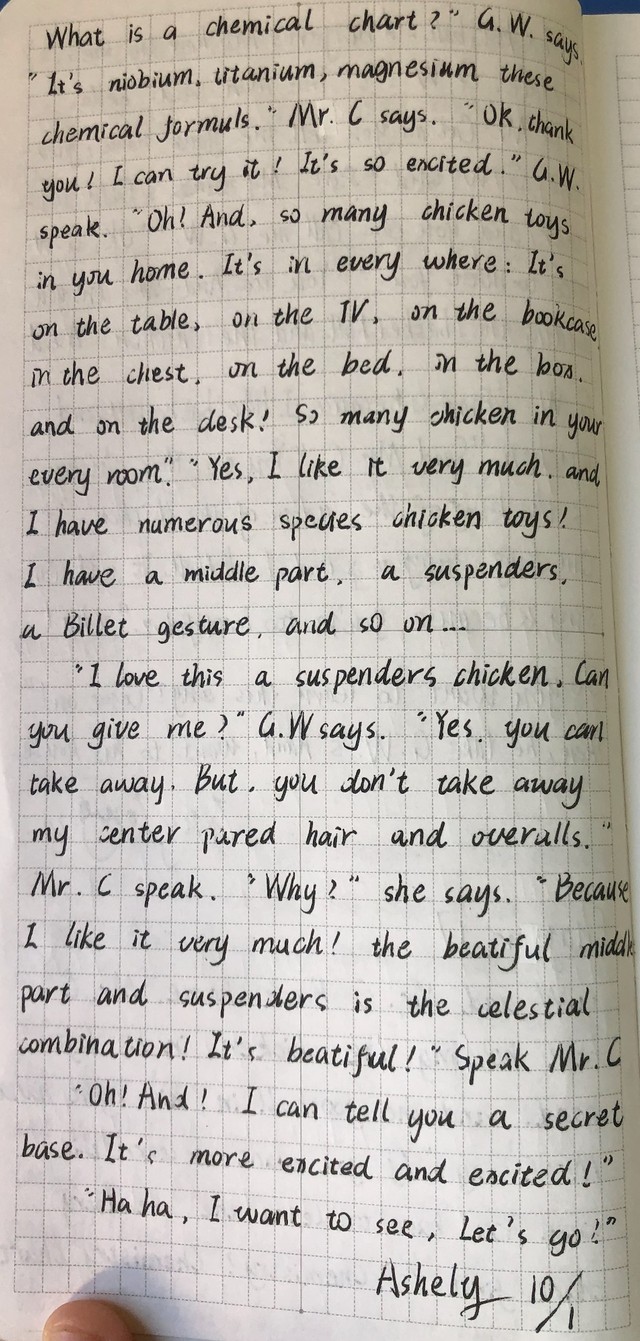 What is a chemical chart?" G.W. says.
"It's niobium, titanium, magnesium these
chemical formuls." Mr. C says. "Ok, thank
you! I can try it! It's so excited." G.W.
speak. "Oh! And, so many chicken toys
in you home. It's in every where: It's
on the table, on the TV, on the bookcase,
in the chest, on the bed, in the box,
and on the desk! So many chicken in your
every room". "Yes, I like it very much, and
I have numerous species chicken toys!
I have a middle part, a suspenders,
a Billet gesture, and so on...
"I love this a suspenders chicken, Can
you give me?" G.W says. "Yes, you can
take away. But, you don't take away
my center pared hair and overalls."
Mr. C speak. "Why?" she says. "Because
I like it very much! the beatiful middle
part and suspenders is the celestial
combination! It's beatiful!" Speak Mr. C
"Oh! And! I can tell you a secret
base. It's more excited and excited!"
"Ha ha, I want to see, Let's go!"
Ashely 10/1